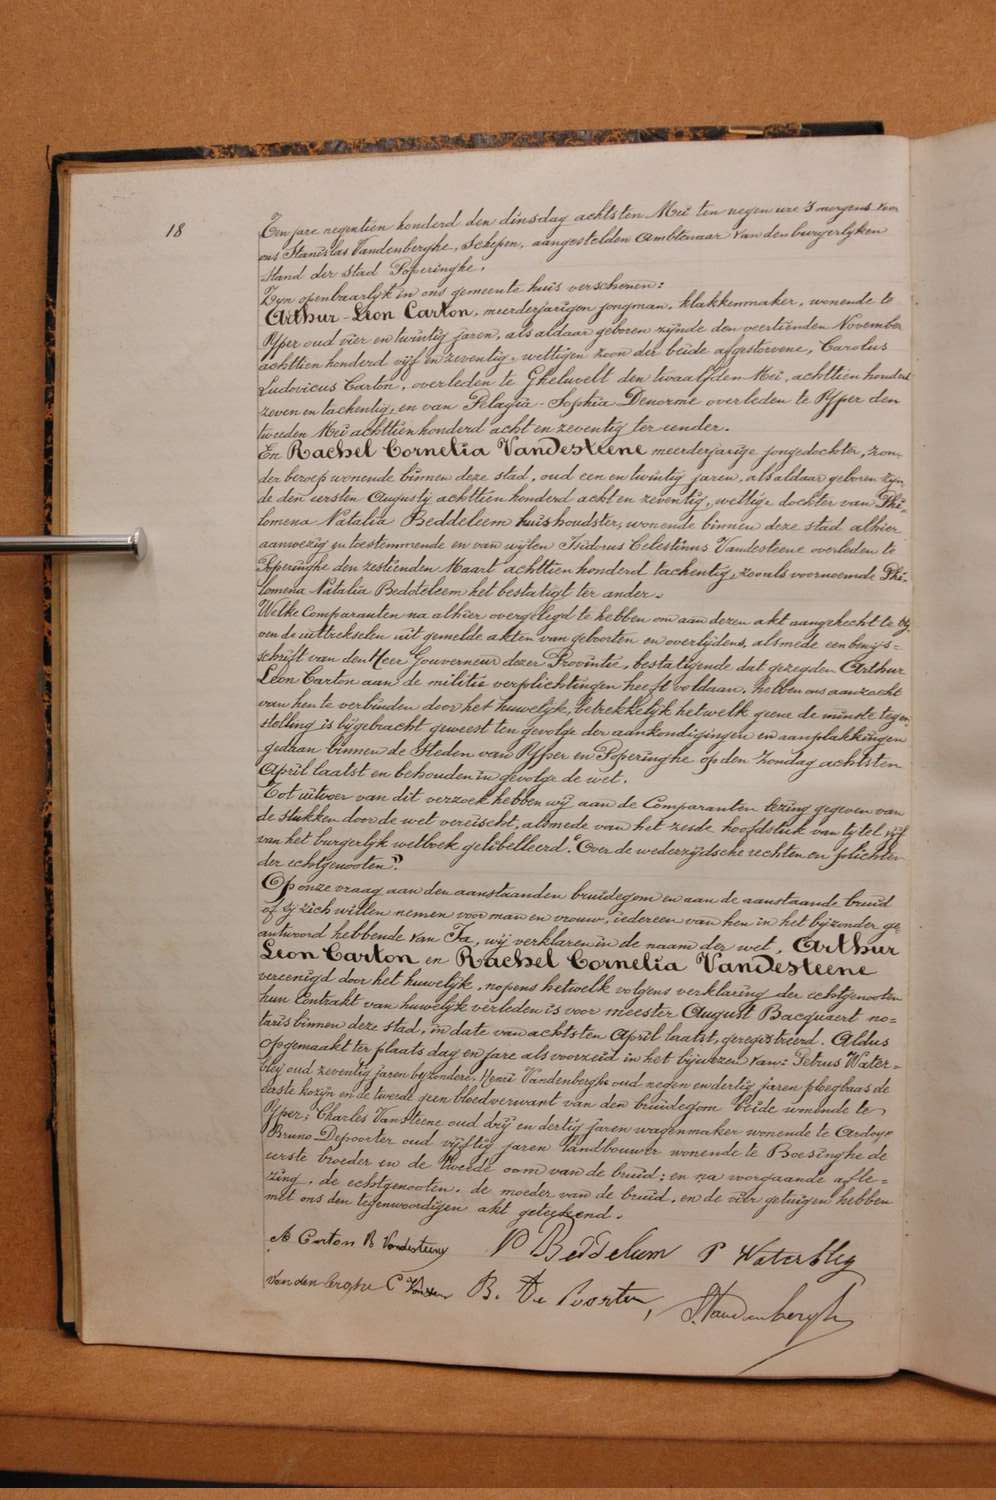 18
Ten jare negentien honderd den dinsdag achtsten Mei ten negen ure 's morgens voor
ons Stanislas Vandenberghe, Schepen, aangestelden Ambtenaar van den burgerlyken
stand der stad Poperinghe.
Zyn openbaarlyk in ons gemeente huis verschenen:
Arthur-Leon Carton, meerderjarigen jongman, klakkenmaker, wonende te
Yper oud vier en twintig jaren, als aldaar geboren zijnde den veertienden November
achttien honderd vijf en zeventig, wettigen zoon der beide afgestorvene, Carolus
Ludovicus Carton, overleden te Gheluvelt den twaalfden Mei, achttien honderd
zeven en tachentig, en van Pelagia-Sophia Denorme overleden te Yper den
tweeden Mei achttien honderd acht en zeventig ter eender.
En Rachel Cornelia Vandesteene meerderjarige jongedochter, zon-
der beroep wonende binnen deze stad, oud een en twintig jaren, als aldaar geboren zijn-
de den eersten Augusty achttien honderd acht en zeventig, wettige dochter van Phi-
lomena Natalia Beddeleem huishoudster, wonende binnen deze stad alhier
aanwezig en toestemmende en van wijlen Isidorus Celestinus Vandesteene overleden te
Poperinghe den zestienden Maart achttien honderd tachentig, zooals voornoemde Phi-
lomena Natalia Beddeleem het bestatigt ter ander.
Welke Comparanten na alhier overgelegd te hebben om aan dezen akt aangehecht te blij-
ven de uittrekselen uit gemelde akten van geboorten en overlijdens, alsmede een bewijs-
schrift van den Heer Gouverneur dezer Provintie, bestatigende dat gezegden Arthur
Leon Carton aan de militie verplichtingen heeft voldaan, hebben ons aanzocht
van hen te verbinden door het huwelijk, betrekkelijk hetwelk geene de minste tegen-
stelling is bijgebracht geweest ten gevolge der aankondigingen en aanplakkingen
gedaan binnen de Steden van Yper en Poperinghe op den Zondag achtsten
April laatst en behouden in gevolge de wet.
Tot uitvoer van dit verzoek hebben wij aan de Comparanten lezing gegeven van
de stukken door de wet vereischt, alsmede van het zesde hoofdstuk van tytel vijf
van het burgerlyk wetboek getitelleerd: "Over de wederzijdsche rechten en plichten
der echtgenooten".
Op onze vraag aan den aanstaanden bruidegom en aan de aanstaande bruid
of zij zich willen nemen voor man en vrouw, iedereen van hen in het bijzonder ge-
antwoord hebbende van Ja, wij verklaren in de naam der wet, Arthur
Leon Carton en Rachel Cornelia Vandesteene
vereenigd door het huwelijk, nopens hetwelk volgens verklaring der echtgenooten
hun Contrakt van huwelijk verleden is voor meester August Bacquaert no-
taris binnen deze stad, in date van achtsten April laatst, geregistreerd. Aldus
opgemaakt ter plaats dag en jare als voorzeid in het bijwezen van: Petrus Water-
bley oud zeventig jaren byzondere, Henri Vandenberghe oud negen en dertig jaren ploegbaas de
eerste kozijn en de tweede geen bloedverwant van den bruidegom beide wonende te
Yper; Charles Vansteene oud drij en dertig jaren wagenmaker wonende te Ardoye
Bruno Depoorter oud vijftig jaren landbouwer wonende te Boesinghe de
eerste broeder en de tweede oom van de bruid; en na voorgaande afle-
zing, de echtgenooten, de moeder van de bruid, en de vier getuigen hebben
met ons den tegenwoordigen akt geteekend.
A Carton R Vandesteene P Beddelum P Waterbley
Vandenberghe C B. De Poorter, S. Vandenberghe